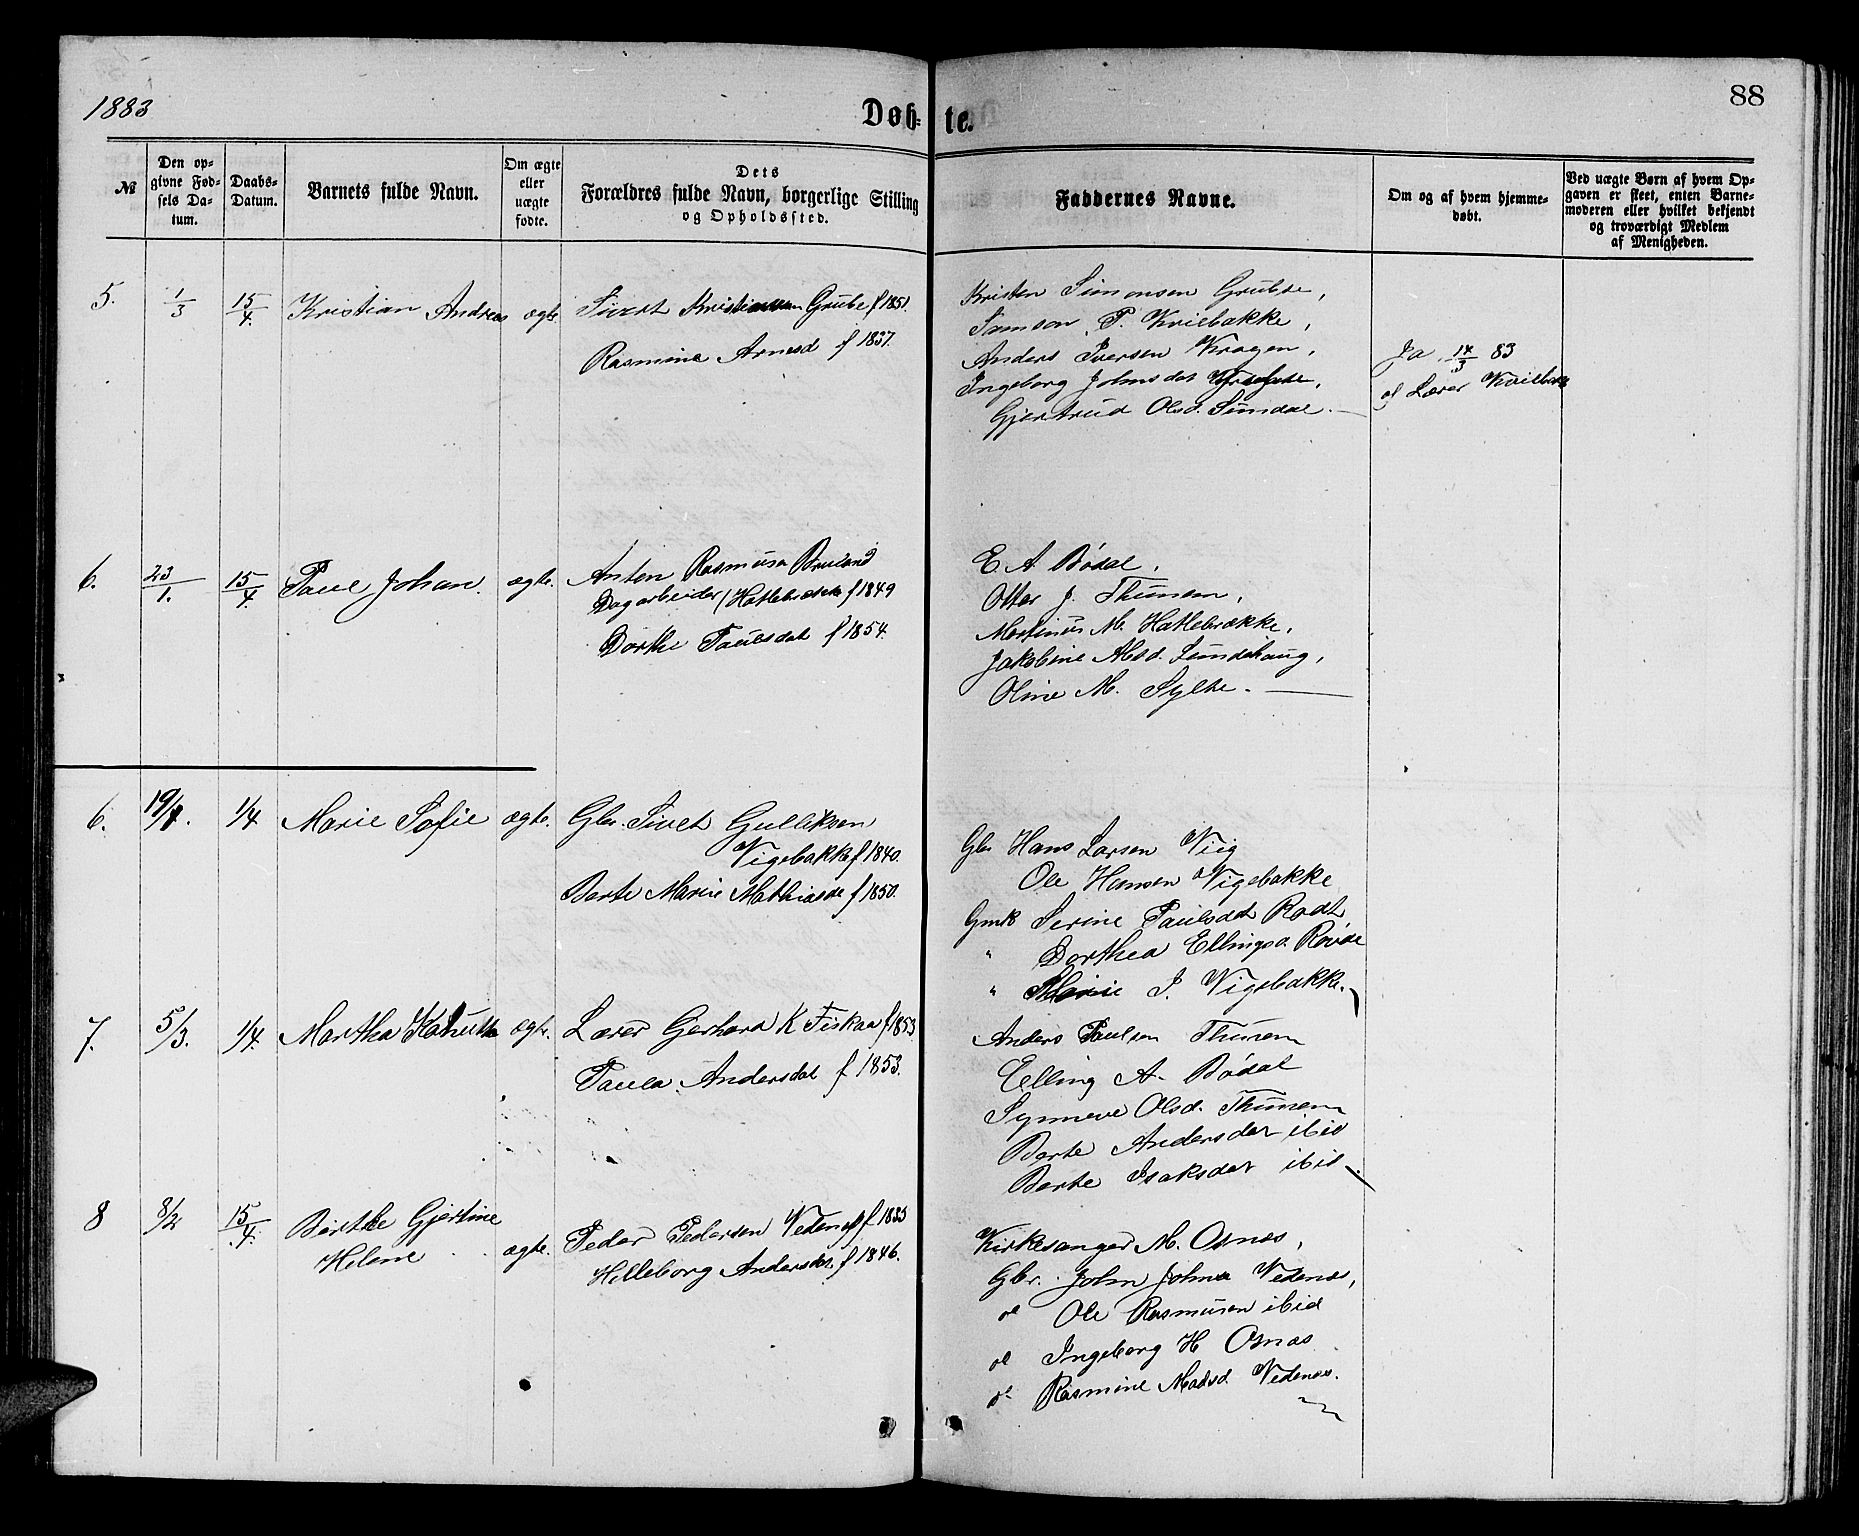 1883
Døb-
te.
88
№
Den op-
givne Fød-
sels Da-
tum.
Daabs-
Datum.
Barnets fulde Navn.
Om ægte
eller
uægte
fødte.
Dets
Forældres fulde Navn, borgerlige Stilling
og Opholdssted.
Faddernes Navne.
Om og af hvem hjemme-
døbt.
Ved uægte Børn af hvem Op-
gaven er skeet, enten Barne-
moderen eller hvilket bekjendt
og troværdigt Medlem
af Menigheden.
5. 1/3 15/4. Kristian Andreas ægte. Sivert Kristiansen Grube f 1851.
Rasmine Arnesd f 1837.
Kristen Simonsen Grubse,
Samson P. Kvilbakke,
Anders Iversen Kragen,
Ingeborg Johnsdat
Gjertrud Olsd. Sundal.
Ja 14/3 83
af Lærer Kvilbak
6. 23/1. 15/4 Paul Johan. ægte. Anton Rasmusn
Dagarbeider / Hatlebrække f 1849
Dorthe Paulsdat f 1854.
E. A Bødal.
Otter J. Thunem,
Martinus M. Hatlebrække,
Jakobine Sundshaug,
Oline M. Sylte.
6. 19/1. 1/4 Marie Sofie ægte. Gbr. Sivet Gulliksen
Vigebakke f 1840.
Berte Marie Mathiasd f 1850.
Gbr Hans Larsen Viig
Ole Hansen Vigebakke
Gmk Serine Paulsdat Rødt
" Dorthea Ellingsd. Røvde
" Marie J. Vigebakke.
7. 5/3. 1/4. Martha ægte. Lærer Gerhard K Fiskaa f 1853
Paula Andersdat f 1853.
Anders Paulsen Thunem
Elling A. Bødal
Synneve Olsd. Thunem
Berte Andersdat ibid
Berte Isaksdat ibid
8 8/2 15/4. Birthe Gjertine
Helene ægte. Peder Pedersen Vedenæs f 1835
Hilleborg Andersdat f 1846.
Kirkesanger M. Osnes,
Gbr. John Johns Vedenæs,
do Ole Rasmusen ibid
do Ingeborg H Osnæs
do Rasmine Madsd Vedenæs.